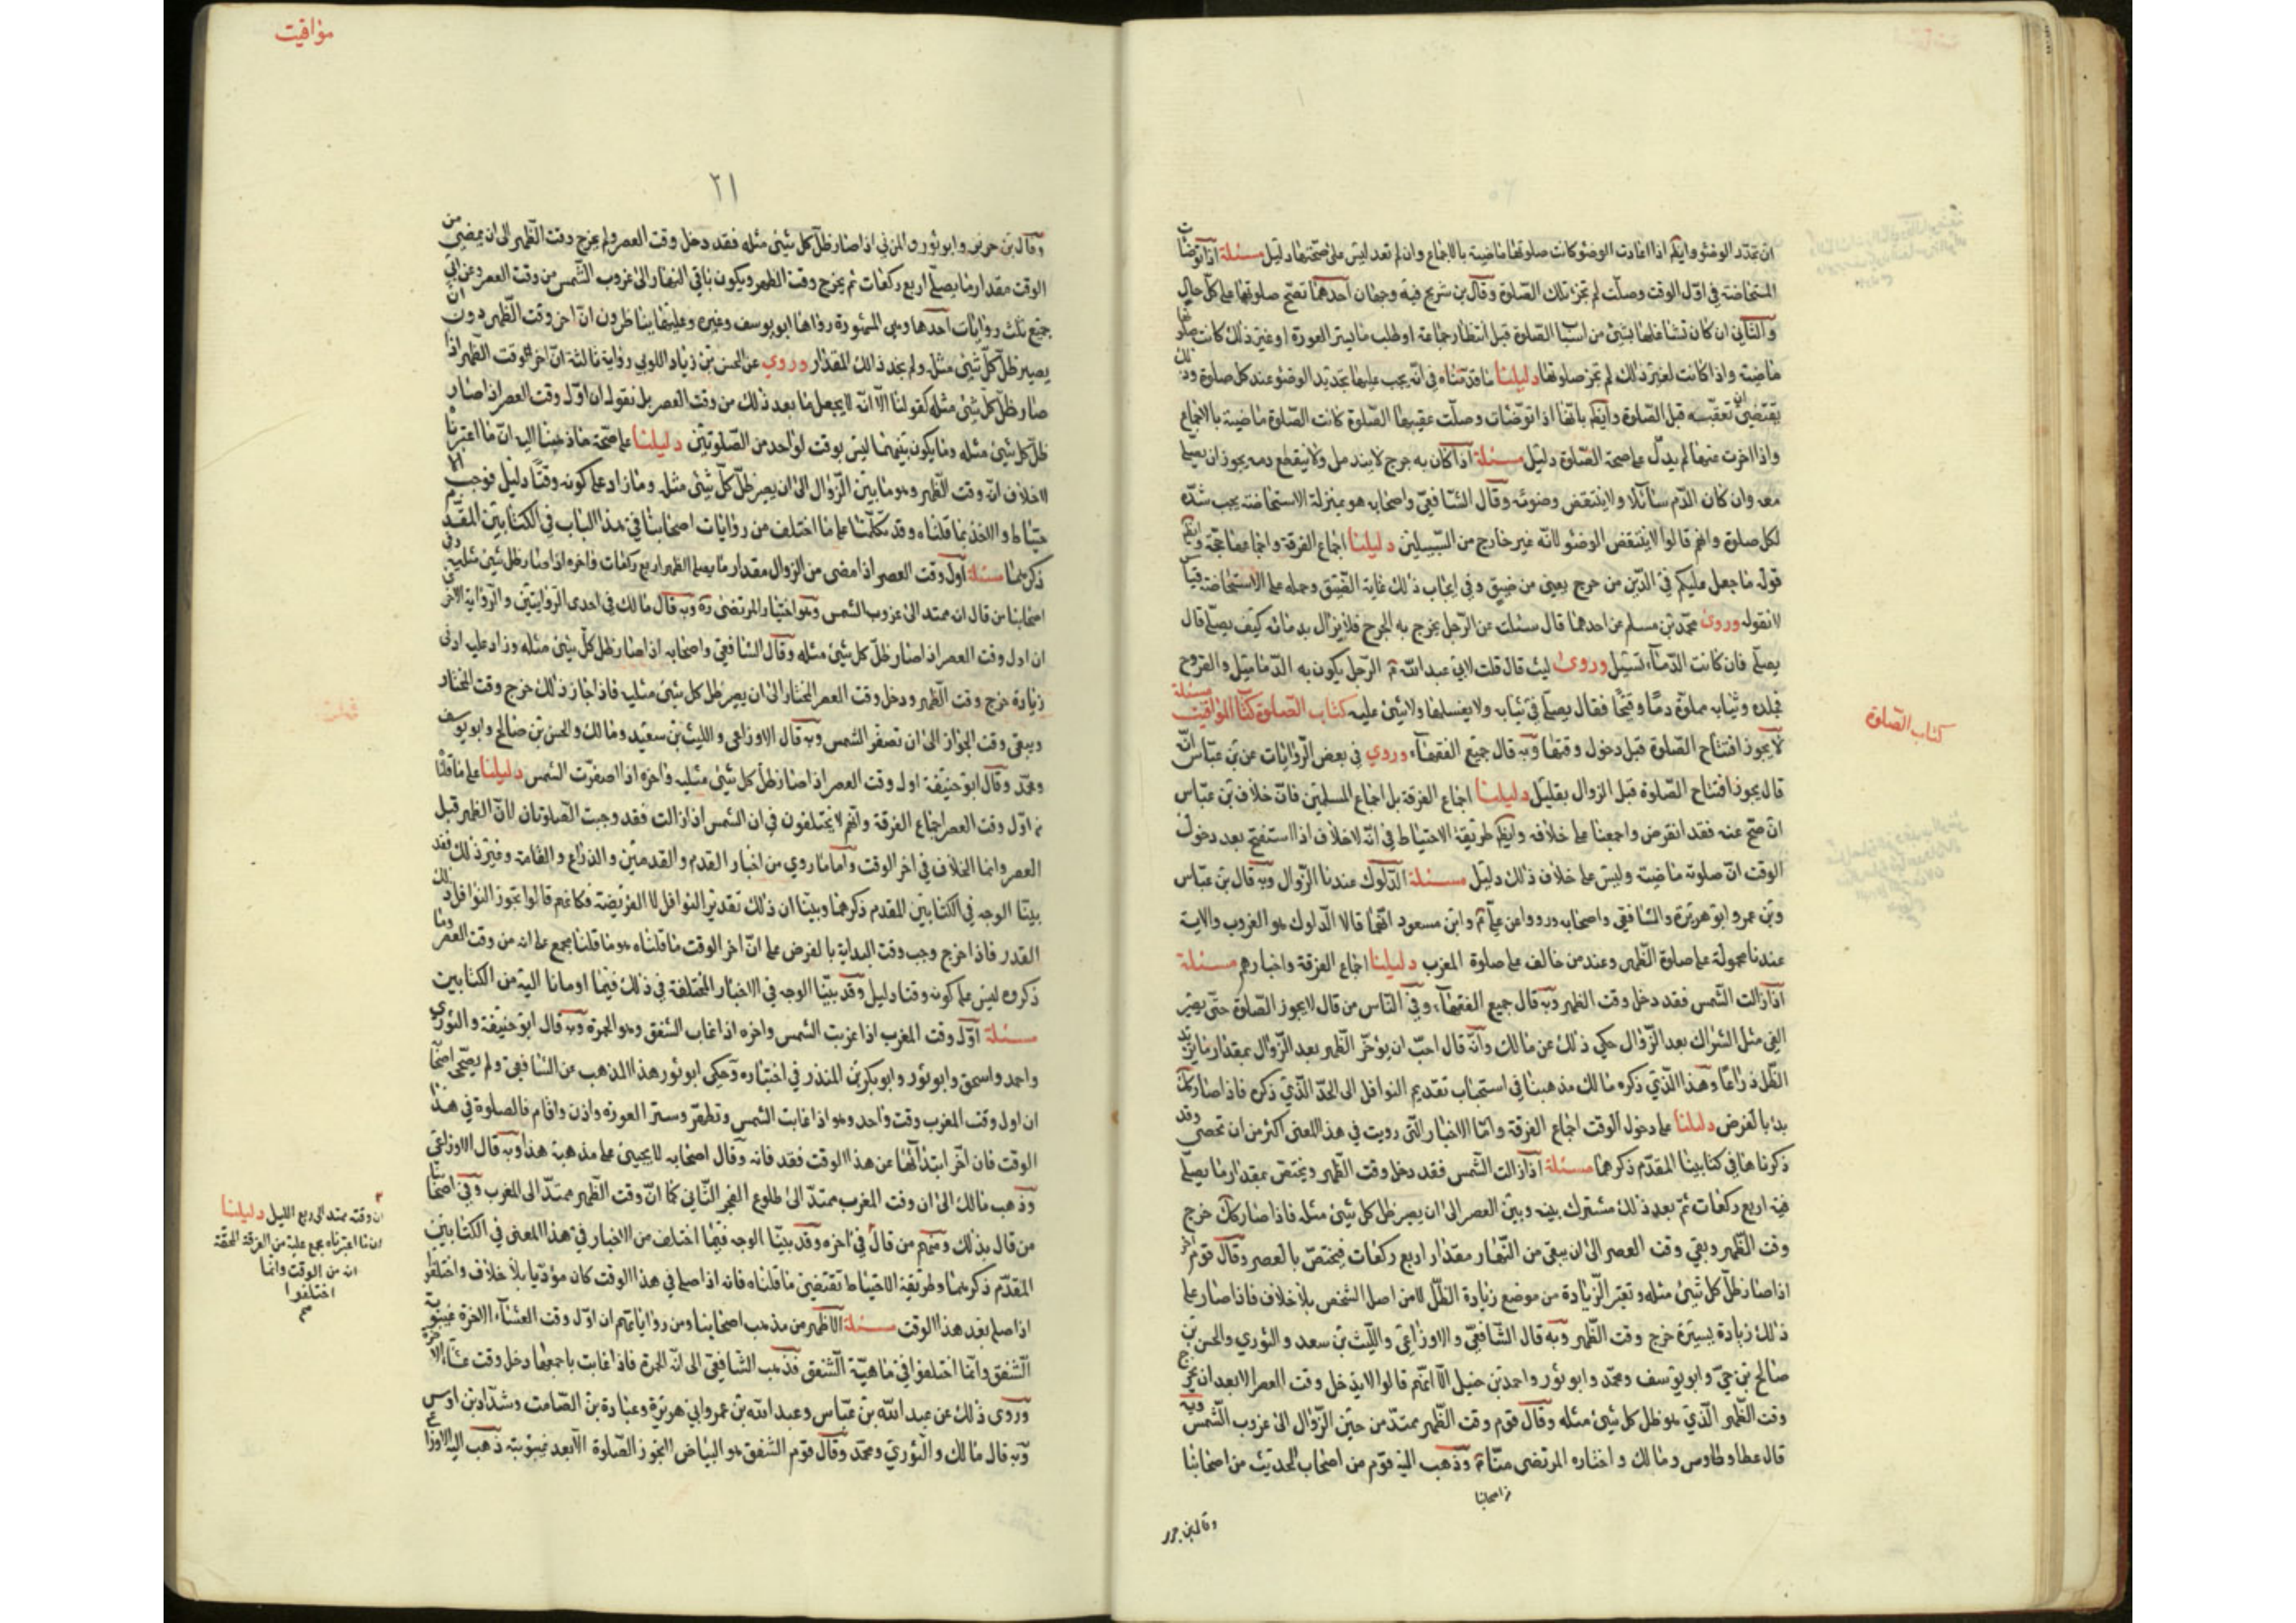 ان تجدد الوضوء وايضا اذا اعادت الوضوء كانت صلوتها ماضية بالاجماع وان لم تعد ليس على صحتها دليل مسئلة اذا توضات
المستحاضة في اول الوقت وصلت لم تجز تلك الصلوة وقال بن شريح فيه وجهان احدهما تصح صلوتها على كل حال
والثاني ان كان تشاغلها بشئ من اسباب الصلوة قبل انتظار جماعة او طلب ما يستر العورة او غير ذلك كانت صلوتها
ماضية واذا كانت لغير ذلك لم تجز صلوتها دليلنا ما قدمناه في انه يجب عليها تجديد الوضوء عند كل صلوة وذلك
يقتضي ان تعقبه قبل الصلوة وايضا بانها اذا توضات وصلت عقيبها الصلوة كانت الصلوة ماضية بالاجماع
واذا اخرت عنها لم يدل على صحة الصلوة دليل مسئلة اذا كان به جرح لا يندمل ولا ينقطع دمه يجوز ان يصلي
معه وان كان الدم سائلا ولا ينتقض وضوئه وقال الشافعي واصحابه هو بمنزلة الاستحاضة يجب شده
لكل صلوة وانهم قالوا لا ينتقض الوضوء لانه غير خارج من السبيلين دليلنا اجماع الفرقة واجماعها حجة وايضا
قوله ما جعل عليكم في الدين من حرج يعني من ضيق وفي ايجاب ذلك غاية الضيق وحمله على الاستحاضة قياس
لا نقوله وروى محمد بن مسلم عن احدهما قال سئلت عن الرجل يخرج به الجرح فلا يزال يدمانه كيف يصلي قال
يصلي فان كانت الدماء تسيل وروى ليث قال قلت لابي عبد الله ع الرجل يكون به الدماميل والقروح
فجلده وثيابه مملوة دما وقيحا فقال يصلي في ثيابه ولا يغسلها ولا شئ عليه كتاب الصلوة كتاب المواقيت مسئلة
لا يجوز افتتاح الصلوة قبل دخول وقتها وبه قال جميع الفقهاء وروي في بعض الروايات عن بن عباس انه
قال يجوز افتتاح الصلوة قبل الزوال بقليل دليلنا اجماع الفرقة بل اجماع المسلمين فان خلاف بن عباس
ان صح عنه فقد انقرض واجمعنا على خلافه وايضا طريقة الاحتياط في انه لا خلاف اذا استفتح بعد دخول
الوقت ان صلوته ماضية وليس على خلاف ذلك دليل مسئلة الدلوك عندنا الزوال وبه قال بن عباس
وبن عمر وابو هريرة والشافعي واصحابه ورووا عن علي ع وابن مسعود انهما قالا الدلوك هو الغروب والاية
عندنا محمولة على صلوة الظهر وعند من خالف على صلوة المغرب دليلنا اجماع الفرقة واخبارهم مسئلة
اذا زالت الشمس فقد دخل وقت الظهر وبه قال جميع الفقهاء وفي الناس من قال لا يجوز الصلوة حتى يصير
الفئ مثل الشراك بعد الزوال حكي ذلك عن مالك وانه قال احب ان يؤخر الظهر بعد الزوال بمقدار ما يزيد
الظل ذراعا وهذا الذي ذكره مالك مذهبنا في استحباب تقديم النوافل الى الحد الذي ذكره فاذا صار كك
بدئ بالفرض دليلنا على دخول الوقت اجماع الفرقة واما الاخبار التي رويت في هذا المعنى اكثر من ان تحصى وقد
ذكرناها في كتابينا المقدم ذكرهما مسئلة اذا زالت الشمس فقد دخل وقت الظهر ويختص بمقدار ما يصلي
فيه اربع ركعات ثم بعد ذلك مشترك بينه وبين العصر الى ان يصير ظل كل شئ مثله فاذا صار كك خرج
وقت الظهر وبقي وقت العصر الى ان يبقى من النهار مقدار اربع ركعات فيختص بالعصر وقال قوم
اذا صار ظل كل شئ مثله وتعتبر الزيادة من موضع زيادة الظل لا من اصل الشخص بلا خلاف فاذا صار على
ذلك زيادة يسيرة خرج وقت الظهر وبه قال الشافعي والاوزاعي والليث بن سعد والثوري والحسن بن
صالح بن حي وابو يوسف ومحمد وابو ثور واحمد بن حنبل الا انهم قالوا لا يدخل وقت العصر الا بعد ان يخرج
وقت الظهر الذي هو ظل كل شئ مثله وقال قوم وقت الظهر ممتد من حين الزوال الى غروب الشمس وبه
قال عطا وطاوس ومالك واختاره المرتضى منا وذهب اليه قوم من اصحاب الحديث من اصحابنا
كتاب الصلوة
مواقيت
٢١
وقال بن جرير وابو ثور والمزني اذا صار ظل كل شئ مثله فقد دخل وقت العصر ولم يخرج وقت الظهر الى ان يمضي من
الوقت مقدار ما يصلي اربع ركعات ثم يخرج وقت الظهر ويكون باقي النهار الى غروب الشمس من وقت العصر وعن ابي
ثلث روايات احدها وهي المشهورة رواها ابو يوسف وغيره وعليها يناظرون ان اخر وقت الظهر دون ان
يصير ظل كل شئ مثله ولم يحد ذالك المقدار وروي عن الحسن بن زياد اللوبي رواية ثالثة ان اخر الوقت الظهر اذا
صار ظل كل شئ مثله كقولنا الا انه لا يجعل ما بعد ذلك من وقت العصر بل نقوله ان اول وقت العصر اذا صار
ظل كل شئ مثله وما يكون بينهما ليس بوقت لواحد من الصلوتين دليلنا على صحة ما ذهبنا اليه ان ما اعتبرنا
لا خلاف ان وقت الظهر وهو ما بين الزوال الى ان يصير ظل كل شئ مثله وما زاد على كونه وقتا دليل فوجب
والاخذ بما قلناه وقد تكلمنا على ما اختلف من روايات اصحابنا في هذا الباب في الكتابين المقدم
ذكرهما مسئلة اول وقت العصر اذا مضى من الزوال مقدار ما يصلي الظهر اربع ركعات واخره اذا صار ظل شئ مثليه وفي
اصحابنا من قال انه ممتد الى غروب الشمس وهو اختيار المرتضى ره وبه قال مالك في احدى الروايتين والرواية الاخرى
ان اول وقت العصر اذا صار ظل كل شئ مثله وقال الشافعي واصحابه اذا صار ظل كل شئ مثله وزاد عليه ادنى
زيادة خرج وقت الظهر ودخل وقت العصر المختار الى ان يصير ظل كل شئ مثليه فاذا جاز ذلك خرج وقت المختار
ويبقى وقت الجواز الى ان تصفر الشمس وبه قال الاوزاعي والليث بن سعيد ومالك والحسن بن صالح وابو يوسف
ومحمد وقال ابو حنيفة اول وقت العصر اذا صار ظل كل شئ مثليه واخره اذا اصفرت الشمس دليلنا على ما قلنا
اول وقت العصر اجماع الفرقة وانهم لا يختلفون في ان الشمس اذا زالت فقد وجبت الصلوتان لان الظهر قبل
العصر وانما الخلاف في اخر الوقت واما ما روي من اخبار القدم والقدمين والذراع والقامة وغير ذلك فقد
بينا الوجه في الكتابين المقدم ذكرهما وبينا ان ذلك تقدير النوافل لا الفريضة فكانهم قالوا يجوز النوافل ذلك
القدر فاذا خرج وجب وقت البداية بالفرض على ان اخر الوقت ما قلناه هو ما قلنا مجمع على انه من وقت العصر وما
ذكروه ليس على كونه وقتا دليل وقد بينا الوجه في الاخبار المختلفة في ذلك فيما اومانا اليه من الكتابين
مسئلة اول وقت المغرب اذا غربت الشمس واخره اذا غاب الشفق وهو الحمرة وبه قال ابو حنيفة والثوري
واحمد واسحق وابو ثور وابو بكر بن المنذر في اختياره وحكى ابو ثور هذا المذهب عن الشافعي ولم يصححه اصحا
ان اول وقت المغرب وقت واحد وهو اذا غابت الشمس وتطهر وستر العورة واذن واقام فالصلوة في هذا
الوقت فان اخر ابتداءها عن هذا الوقت فقد فاته وقال اصحابه لا يجيئ على مذهبه هذا وبه قال الاوزاعي
وذهب مالك الى ان وقت المغرب ممتد الى طلوع الفجر الثاني كما ان وقت الظهر ممتد الى المغرب وفي اصحابنا
من قال بذلك ومنهم من قال في اخره وقد بينا الوجه فيما اختلف من الاخبار في هذا المعنى في الكتابين
المقدم ذكرهما وطريقة الاحتياط تقتضي ما قلناه فانه اذا صلى في هذا الوقت كان مؤديا بلا خلاف واختلفوا
اذا صلى بعد هذا الوقت مسئلة الاظهر من مذهب اصحابنا ومن رواياتهم ان اول وقت العشاء الاخرة غيبوبة
الشفق وانما اختلفوا في ماهية الشفق فذهب الشافعي الى انه الحمرة فاذا غابت باجمعها دخل وقت عشاء الاخرة
وروى ذلك عن عبد الله بن عباس وعبد الله بن عمر وابي هريرة وعبادة بن الصامت وشداد بن اوس
وبه قال مالك والثوري ومحمد وقال قوم الشفق هو البياض لا تجوز الصلوة الا بعد غيبوبته ذهب اليه الاوزاعي
ان وقته ممتد الى ربع الليل دليلنا
ان ما اعتبرناه مجمع عليه من الفرقة المحقة
انه من الوقت وانما
اختلفوا